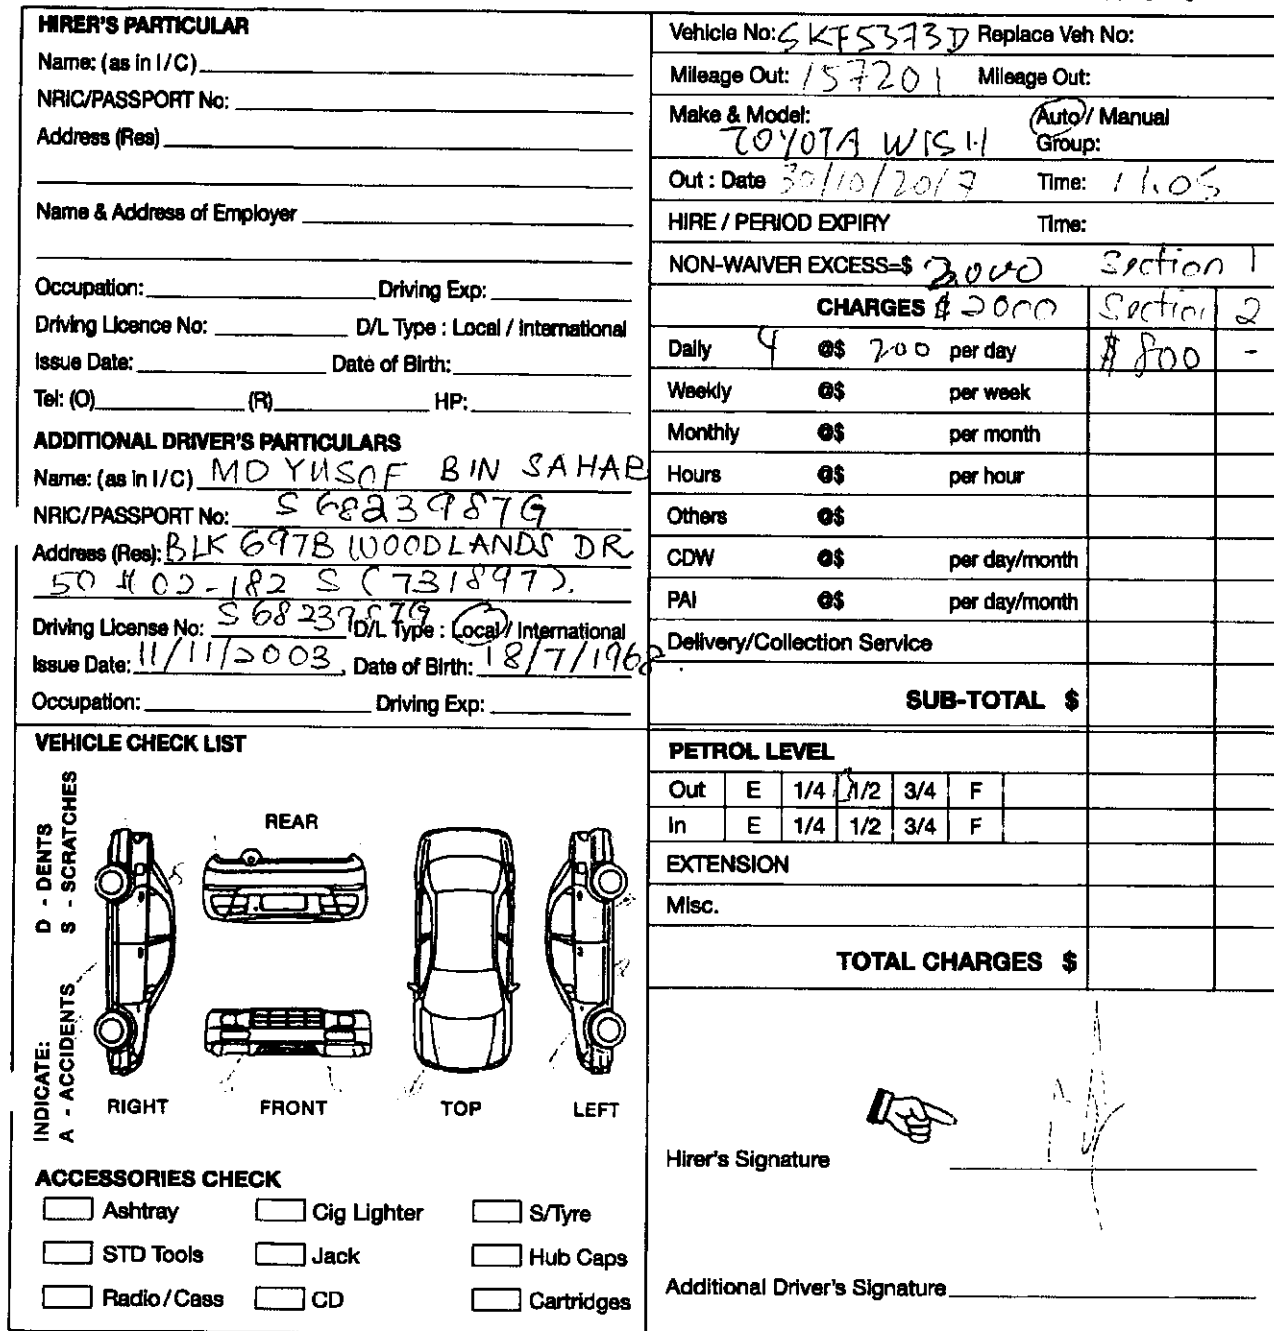 HIRER'S PARTICULAR
Name: (as in I/C)
NRIC/PASSPORT No:
Address (Res)
Name & Address of Employer
Occupation: Driving Exp:
Driving Licence No: D/L Type : Local / International
Issue Date: Date of Birth:
Tel: (O) (R) HP:
ADDITIONAL DRIVER'S PARTICULARS
Name: (as in I/C) MD YUSOF BIN SAHAB
NRIC/PASSPORT No: S6823987G
Address (Res): BLK 697B WOODLANDS DR
50 #02-182 S (731897).
Driving License No: S6823987G D/L Type : Local / International
Issue Date: 11/11/2003, Date of Birth: 18/7/1968.
Occupation: Driving Exp:
VEHICLE CHECK LIST
INDICATE: D - DENTS
A - ACCIDENTS S - SCRATCHES
REAR
RIGHT FRONT TOP LEFT
ACCESSORIES CHECK
Ashtray Cig Lighter S/Tyre
STD Tools Jack Hub Caps
Radio/Cass CD Cartridges
Vehicle No: SKF5373D Replace Veh No:
Mileage Out: 157201 Mileage Out:
Make & Model: Auto / Manual
TOYOTA WISH Group:
Out : Date 30/10/2017 Time: 11.05
HIRE / PERIOD EXPIRY Time:
NON-WAIVER EXCESS=$ 2000 Section 1
CHARGES $2000 Section 2
Daily 4 @$ 200 per day $800 -
Weekly @$ per week
Monthly @$ per month
Hours @$ per hour
Others @$
CDW @$ per day/month
PAI @$ per day/month
Delivery/Collection Service
SUB-TOTAL $
PETROL LEVEL
Out E 1/4 1/2 3/4 F
In E 1/4 1/2 3/4 F
EXTENSION
Misc.
TOTAL CHARGES $
Hirer's Signature
Additional Driver's Signature